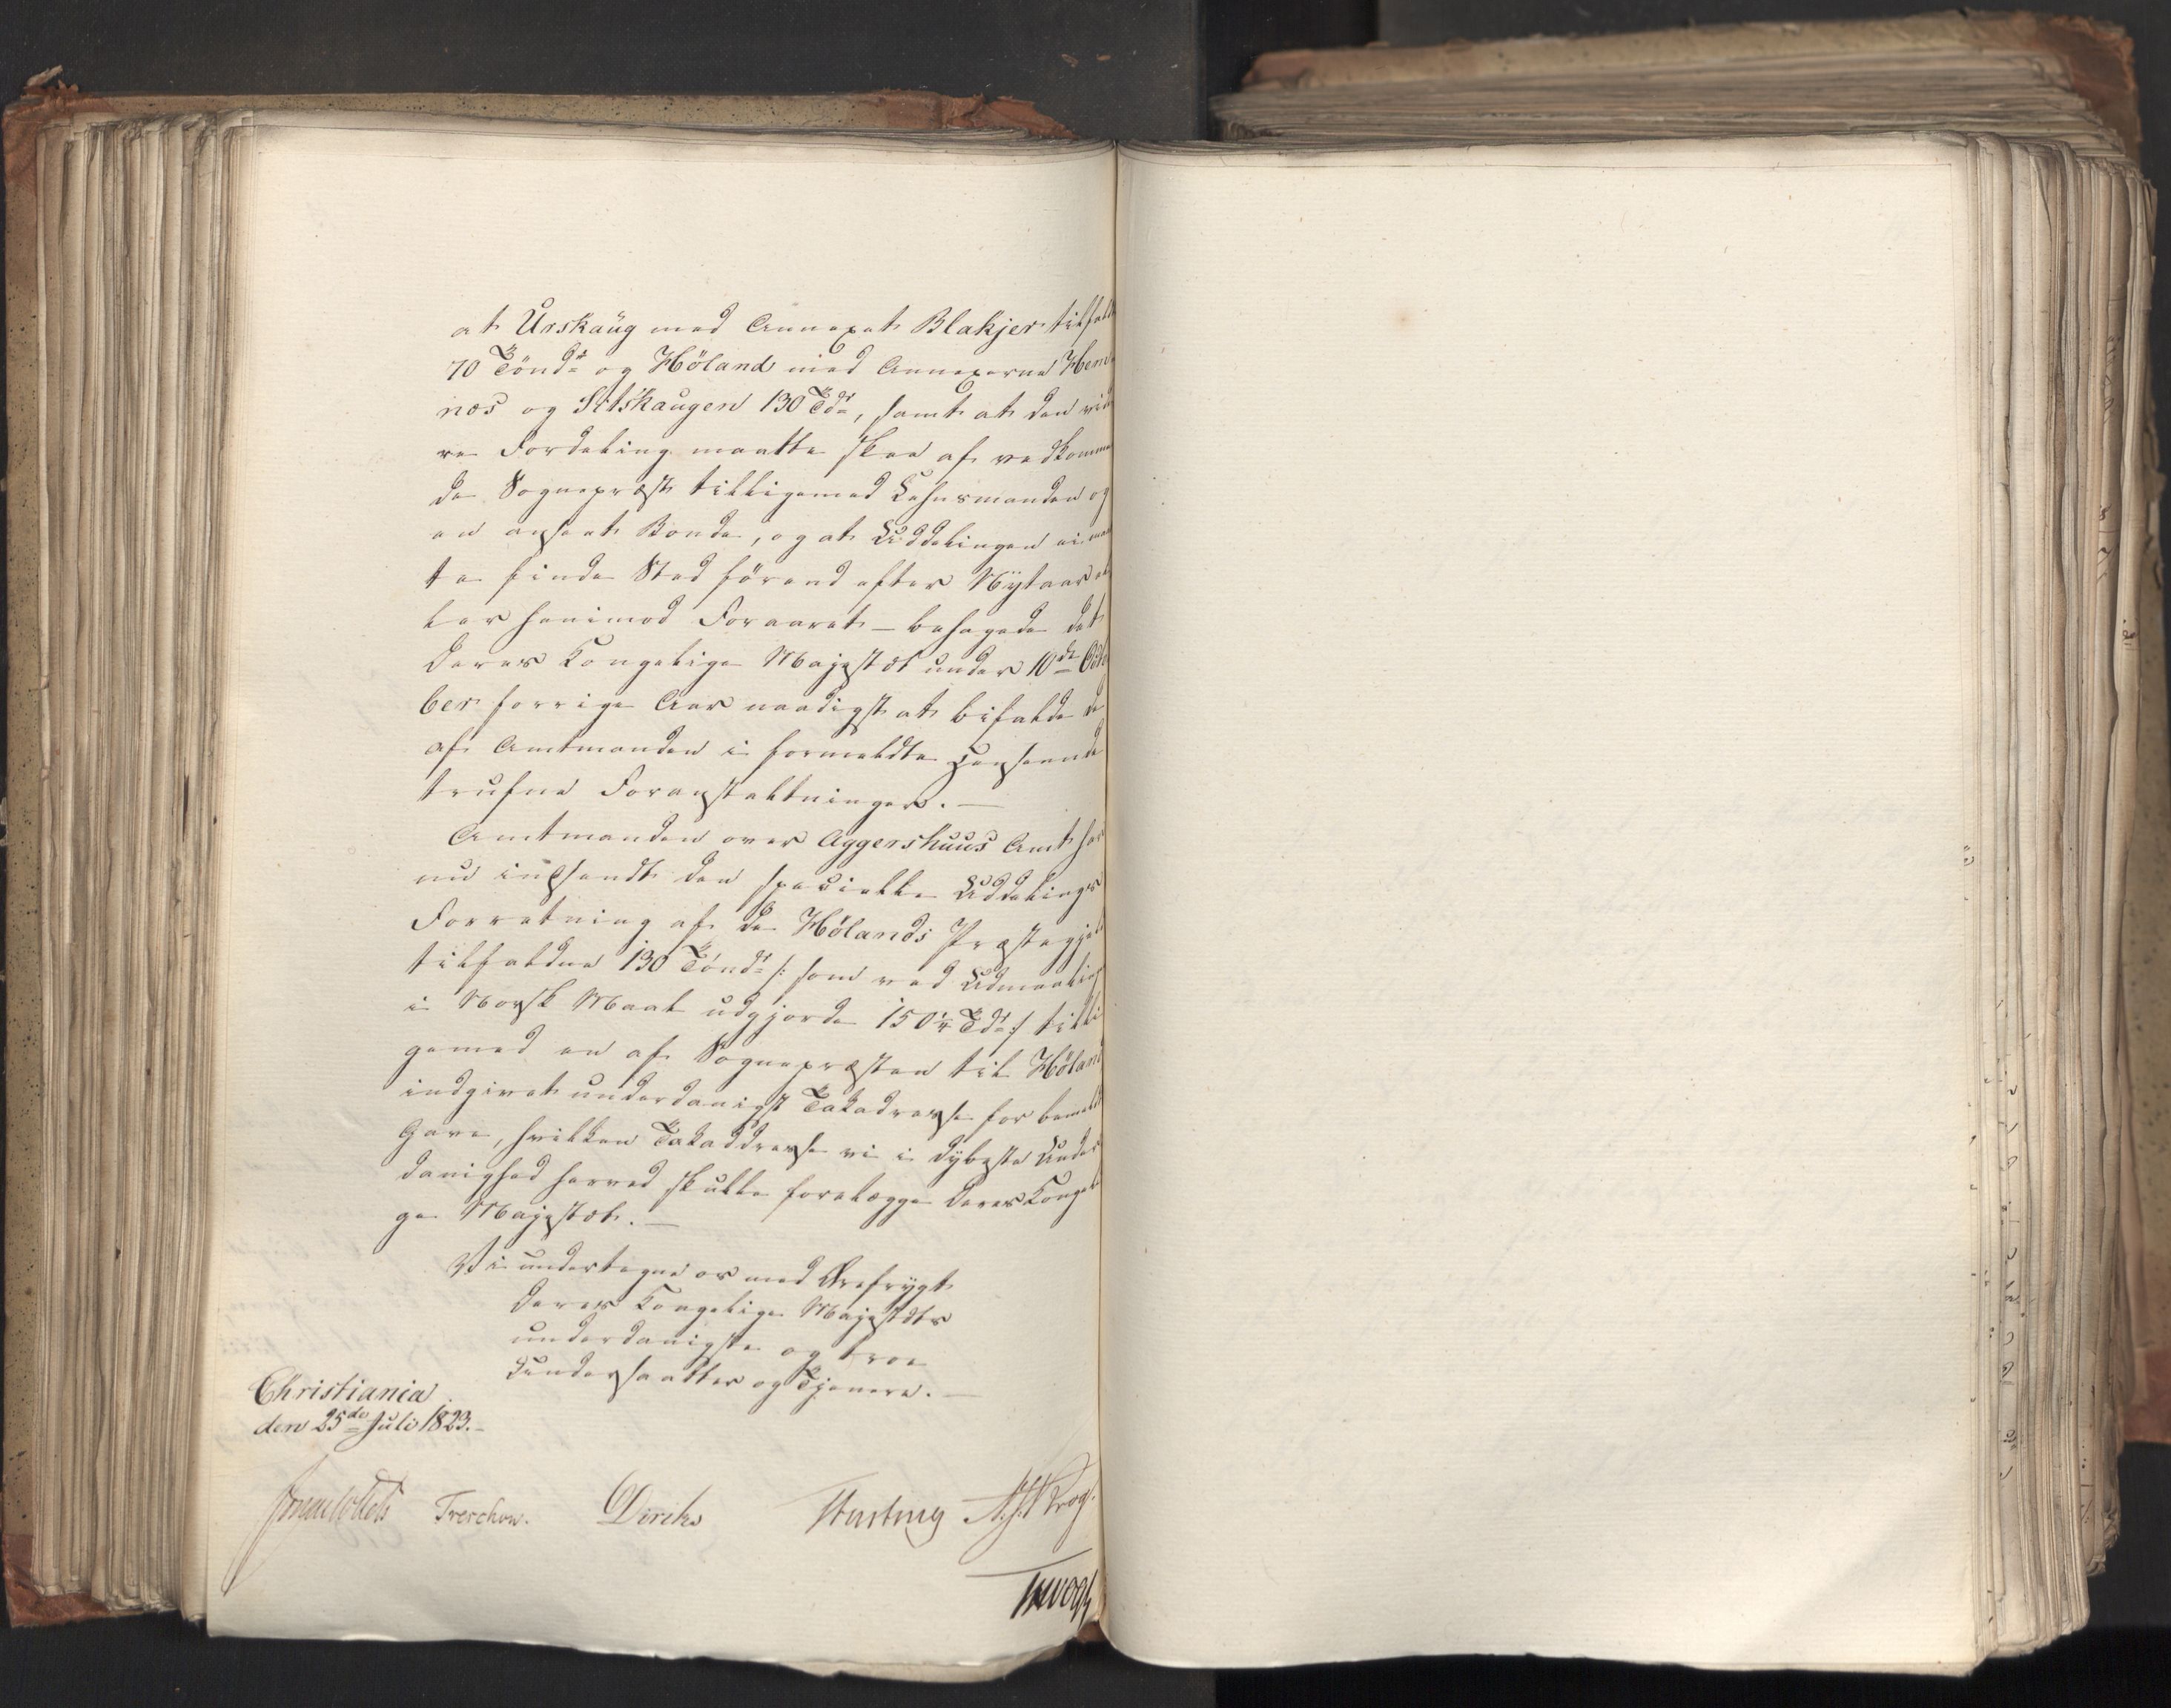 at Urskaug med Annexet Blakjer tilfaldt
70 Tönd<sup>r</sup> og Höland med Annexerne Hem-
nœs og Sitskaugen 130 Td<sup>r</sup>, samt at den vide
re Fordeling maatte skee af vedkommen
de Sognepræst tilligemed Lehnsmanden og
en anseet Bonde, og at Uddelingen ei maat
te finde Sted förend efter Nytaar el
ler henimod Foraaret – behagede det
Deres Kongelige Majestæt under 10<sup>de</sup> Octo
ber forrige Aar naadigst at bifalde de
af Amtmanden i formeldte Henseende
trufne Foranstaltninger. –
Amtmanden over Aggershuus Amt har
nu indsendt den specielle Uddelings
Forretning af de Hölands Præstegjeld
tilfaldne 130 Tönd<sup>r</sup> /: som ved Udmaaling
i Norsk Maal udgjorde 150¼ Td<sup>r</sup> :/ tilli
gemed en af Sognepræsten til Höland
indgivet underdanigst Takadresse for bemeldte
Gave, hvilken Takaddresse vi i dybeste Under
danighed herved skulle forelægge Deres Kongeli
ge Majestæt. –
Vi undertegne os med Ærefrygt
Deres Kongelige Majestæts
underdanigste og troe
Undersaatter og Tjenere. –
Christiania
den 25<sup>de</sup> Juli 1823. –
Treschow. Diriks